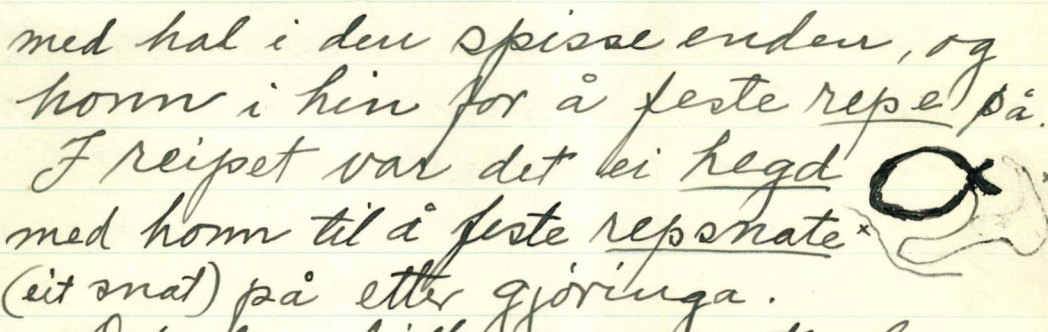 med hal i den spisse enden, og
honn i hin for å feste repe på.
I reipet var det ei hegd
med honn til å feste repsnate x
(eit snat) på etter gjöringa.